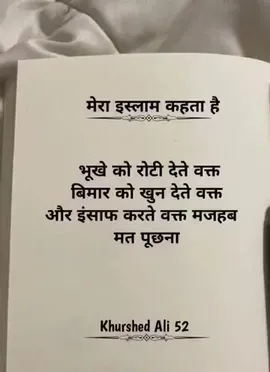 मेरा इस्लाम कहता है
भूखे को रोटी देते वक्त
बिमार को खुन देते वक्त
और इंसाफ करते वक्त मजहब
मत पूछना
Khurshed Ali 52